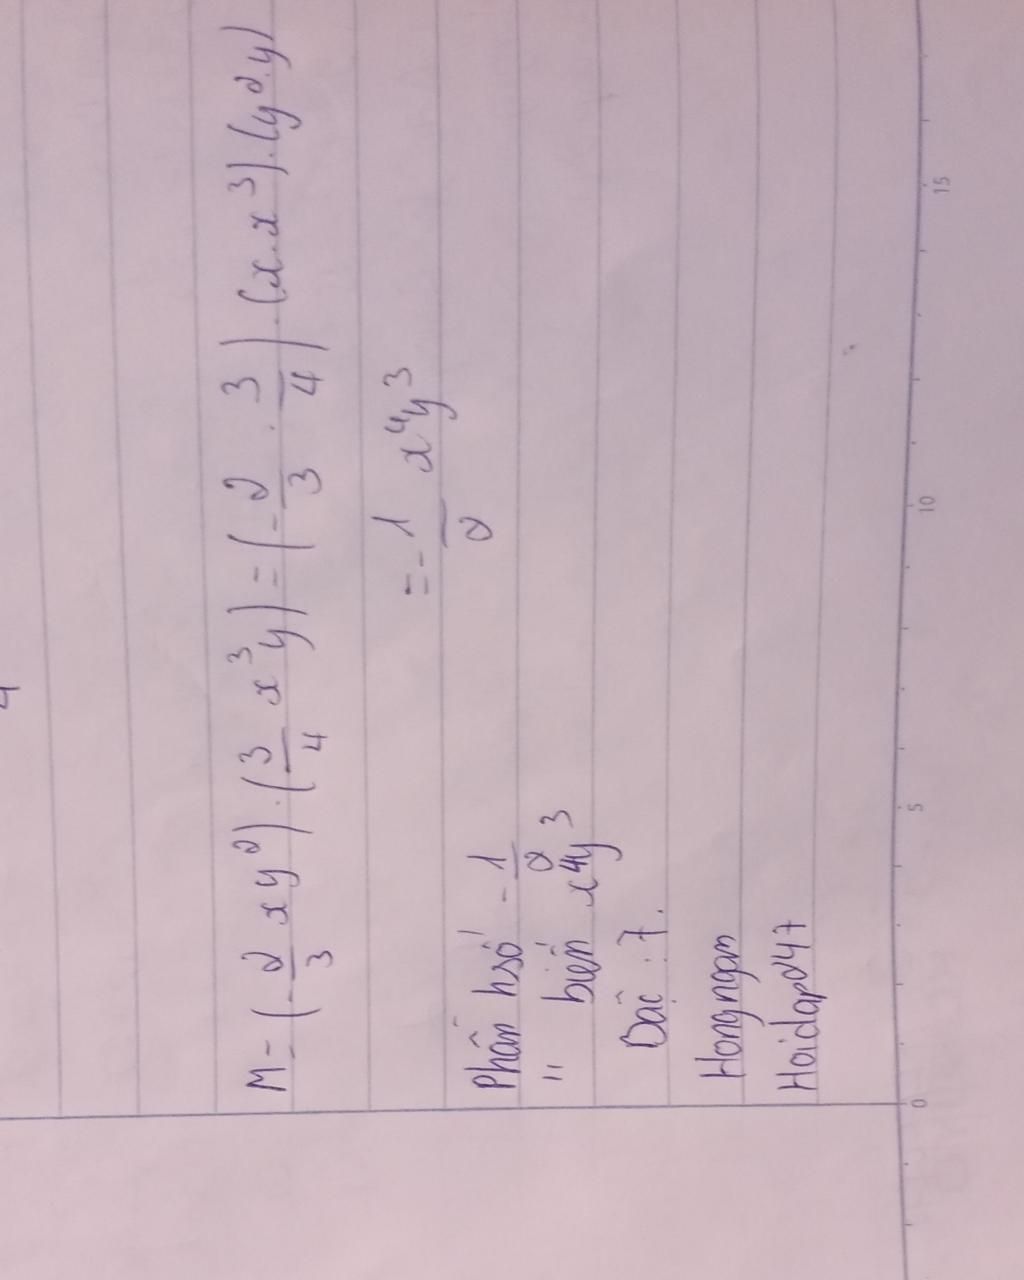 4
M = (-2/3 xy²).(3/4 x³y) = (-2/3 . 3/4).(x.x³).(y².y)
= -1/2 x⁴y³
Phần hsố -1/2
" biến x⁴y³
Bậc : 7.
Hongngan
Hoidap247
0 5 10 15